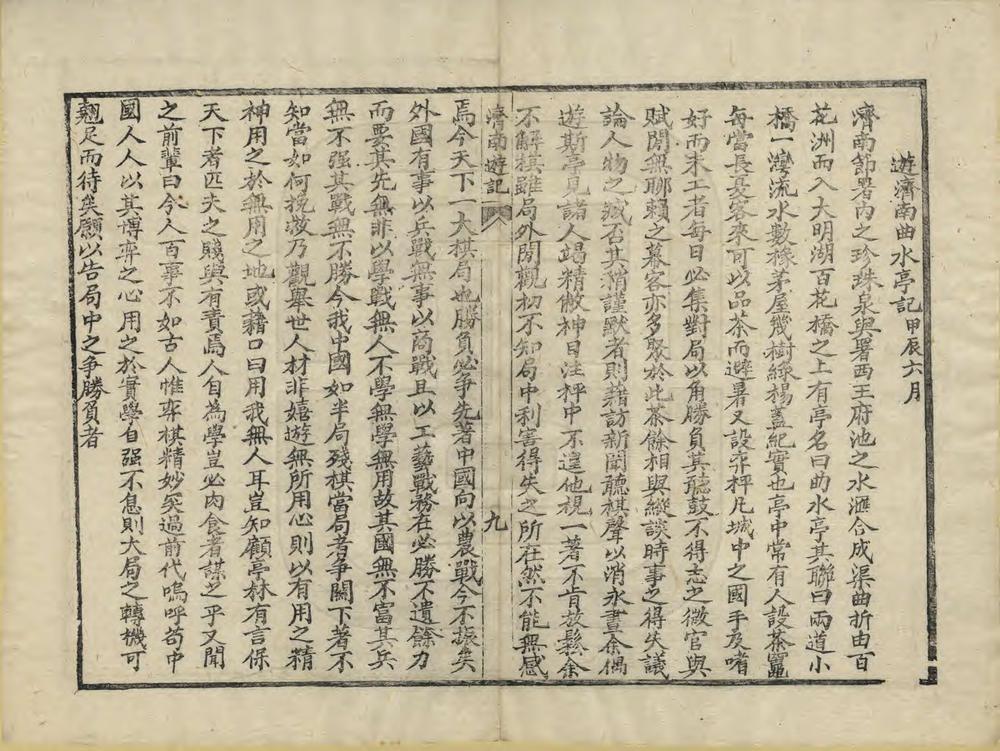 遊濟南曲水亭記甲辰六月
濟南節署內之珍珠泉與署西王府池之水滙合成渠曲折由百
花洲而入大明湖百花橋之上有亭名曰曲水亭其聯曰兩道小
橋一灣流水數椽茅屋幾樹綠楊蓋紀實也亭中常有人設茶竈
每當長夏客來可以品茶而避暑又設弈枰凡城中之國手及嗜
好而未工者每日必集對局以角勝負其聽鼓不得志之微官與
賦閒無聊賴之幕客亦多聚於此茶餘相與縱談時事之得失議
論人物之臧否其稍謹默者則藉訪新聞聽棋聲以消永晝余偶
遊斯亭見諸人竭精敝神目注枰中不遑他視一著不肯放鬆余
不解棋雖局外閒觀初不知局中利害得失之所在然不能無感
濟南遊記
九
焉今天下一大棋局也勝負必爭先著中國向以農戰今不振矣
外國有事以兵戰無事以商戰且以工藝戰務在必勝不遺餘力
而要其先無非以學戰無人不學無學無用故其國無不富其兵
無不强其戰無不勝今我中國如半局殘棋當局者爭關下著不
知當如何挽救乃觀舉世人材非嬉遊無所用心則以有用之精
神用之於無用之地或藉口曰用我無人耳豈知顧亭林有言保
天下者匹夫之賤與有責焉人自為學豈必肉食者謀之乎又聞
之前輩曰今人百事不如古人惟弈棋精妙突過前代嗚呼苟中
國人人以其博弈之心用之於實學自强不息則大局之轉機可
翹足而待矣願以告局中之爭勝負者